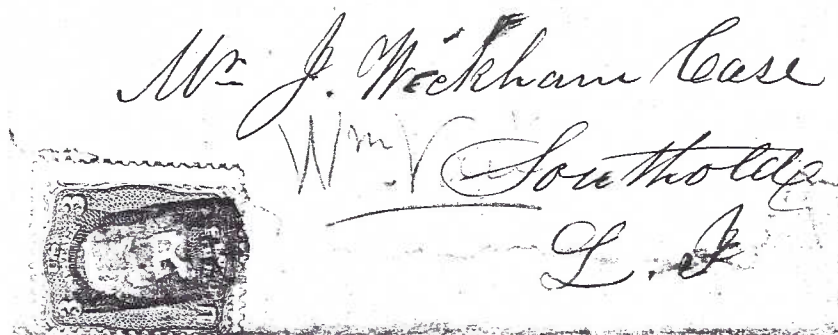 Mr J. Wickham Case
Wm. V
Southold
L. I
3 3
U